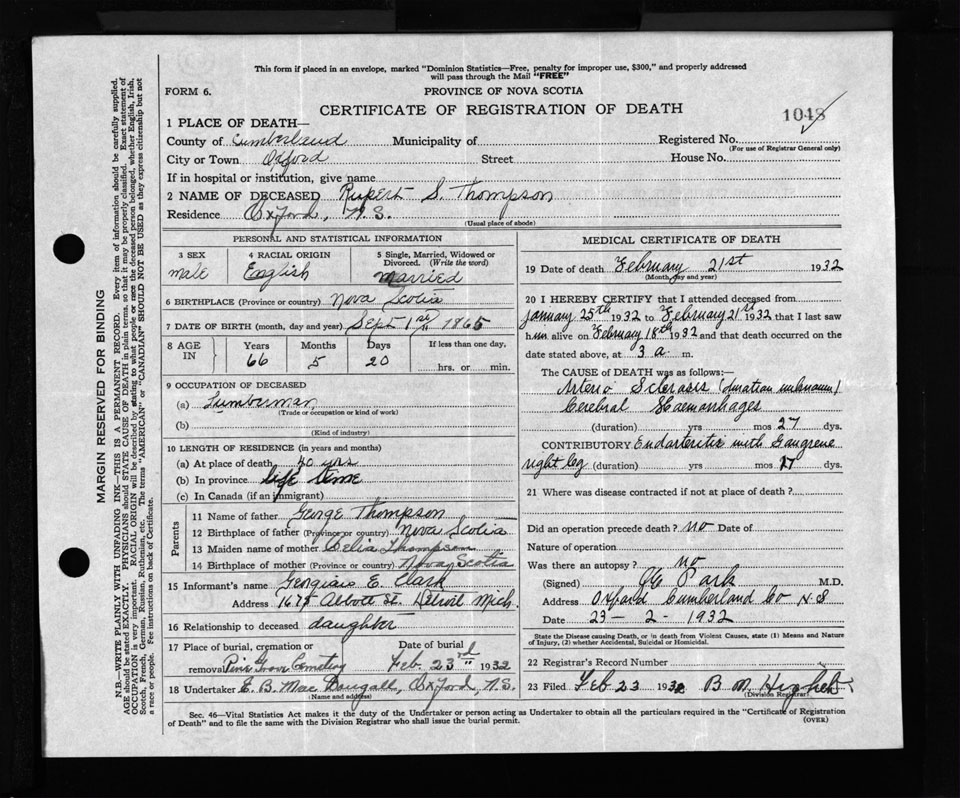 This form if placed in an envelope, marked "Dominion Statistics—Free, penalty for improper use, $300," and properly addressed
will pass through the Mail "FREE"
FORM 6.
PROVINCE OF NOVA SCOTIA
CERTIFICATE OF REGISTRATION OF DEATH
1048
1 PLACE OF DEATH—
County of Cumberland Municipality of Registered No.
(For use of Registrar General only)
City or Town Oxford Street House No.
If in hospital or institution, give name
2 NAME OF DECEASED Rupert S. Thompson
Residence Oxford, N.S.
(Usual place of abode)
MARGIN RESERVED FOR BINDING
N.B.—WRITE PLAINLY WITH UNFADING INK—THIS IS A PERMANENT RECORD. Every item of information should be carefully supplied.
AGE should be stated EXACTLY. PHYSICIANS should STATE CAUSE OF DEATH in plain terms, so that it may be properly classified. Exact statement of
OCCUPATION is very important. RACIAL ORIGIN will be described by stating to what people or race the deceased person belonged, whether English, Irish,
Scotch, French, German, Russian, Ruthenian, etc. The terms "AMERICAN" or "CANADIAN" SHOULD NOT BE USED as they express citizenship but not
a race or people. Fee instructions on back of Certificate.
PERSONAL AND STATISTICAL INFORMATION
3 SEX
male
4 RACIAL ORIGIN
English
5 Single, Married, Widowed or
Divorced. (Write the word)
Married
6 BIRTHPLACE (Province or country) Nova Scotia
7 DATE OF BIRTH (month, day and year) Sept 1st 1865
8 AGE IN
Years Months Days If less than one day,
66 5 20 hrs. or min.
9 OCCUPATION OF DECEASED
(a) Lumberman
(Trade or occupation or kind of work)
(b)
(Kind of industry)
10 LENGTH OF RESIDENCE (in years and months)
(a) At place of death 40 yrs
(b) In province life time
(c) In Canada (if an immigrant)
Parents
11 Name of father George Thompson
12 Birthplace of father (Province or country) Nova Scotia
13 Maiden name of mother Delia Thompson
14 Birthplace of mother (Province or country) Nova Scotia
15 Informant's name E. Clark
Address 1675 Abbott St. Detroit Mich.
16 Relationship to deceased daughter
17 Place of burial, cremation or Date of burial
removal Pine Grove Cemetery Feb. 23rd 1932
18 Undertaker E. B. MacDougall, Oxford, N.S.
(Name and address)
MEDICAL CERTIFICATE OF DEATH
19 Date of death February 21st 1932
(Month, day and year)
20 I HEREBY CERTIFY that I attended deceased from
January 25th 1932 to February 21st 1932 that I last saw
him alive on February 18th 1932 and that death occurred on the
date stated above, at 3 a. m.
The CAUSE OF DEATH was as follows:—
Arterio Sclerosis (duration unknown)
Cerebral Haemorrhages
(duration) yrs mos 27 dys.
CONTRIBUTORY Endarteritis with Gangrene
right leg (duration) yrs mos 17 dys.
21 Where was disease contracted if not at place of death?
Did an operation precede death? no Date of
Nature of operation
Was there an autopsy? no
(Signed) Park M.D.
Address Oxford Cumberland Co N.S
Date 23 - 2 - 1932
State the Disease causing Death, or in death from Violent Causes, state (1) Means and Nature
of Injury, (2) whether Accidental, Suicidal or Homicidal.
22 Registrar's Record Number
23 Filed Feb 23 1932 B M
(Division Registrar)
Sec. 46—Vital Statistics Act makes it the duty of the Undertaker or person acting as Undertaker to obtain all the particulars required in the "Certificate of Registration
of Death" and to file the same with the Division Registrar who shall issue the burial permit.
(OVER)